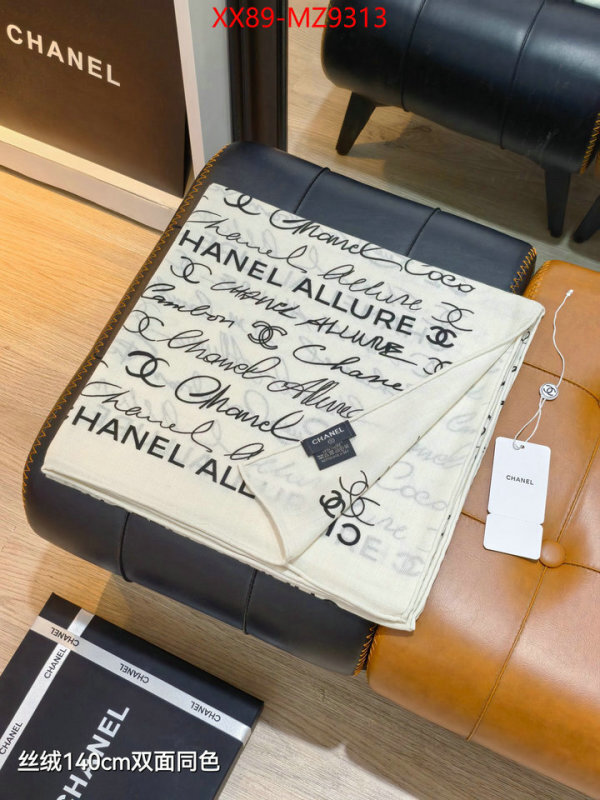 XX89-MZ9313
CHANEL
Chanel Coco
Chanel Allure
HANEL ALLURE
CHANEL ALLURE
Cambon
Chane
Chanel Allure
Chanel
Chanel Allure
HANEL ALL
CHANEL
CHANEL
CHANEL
CHANEL
CHANEL
CHANEL
CHANEL
CHANEL
丝绒140cm双面同色